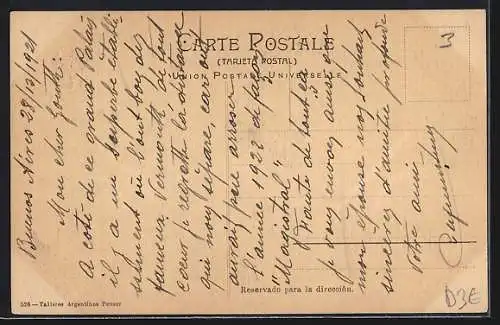 CARTE POSTALE
(TARJETA POSTAL)
UNION POSTALE UNIVERSELLE
Buenos Aires 28/12/1921
Mon cher
A coté de ce grand Palais
il y a un superbe établi-
sement où l'ont boy des
fameux Vermouth de tout
coeur je regrette la distance
qui nous sépare, car on
aurait peu arroser
l'année 1922 de façon
"Magistral"
Faute de tout ça
je vous envoy ainsi que
mon épouse nos souhaits
sincères d'amitié profonde
Votre ami
Reservado para la dirección.
528 — Talleres Argentinos Peuser
D3E